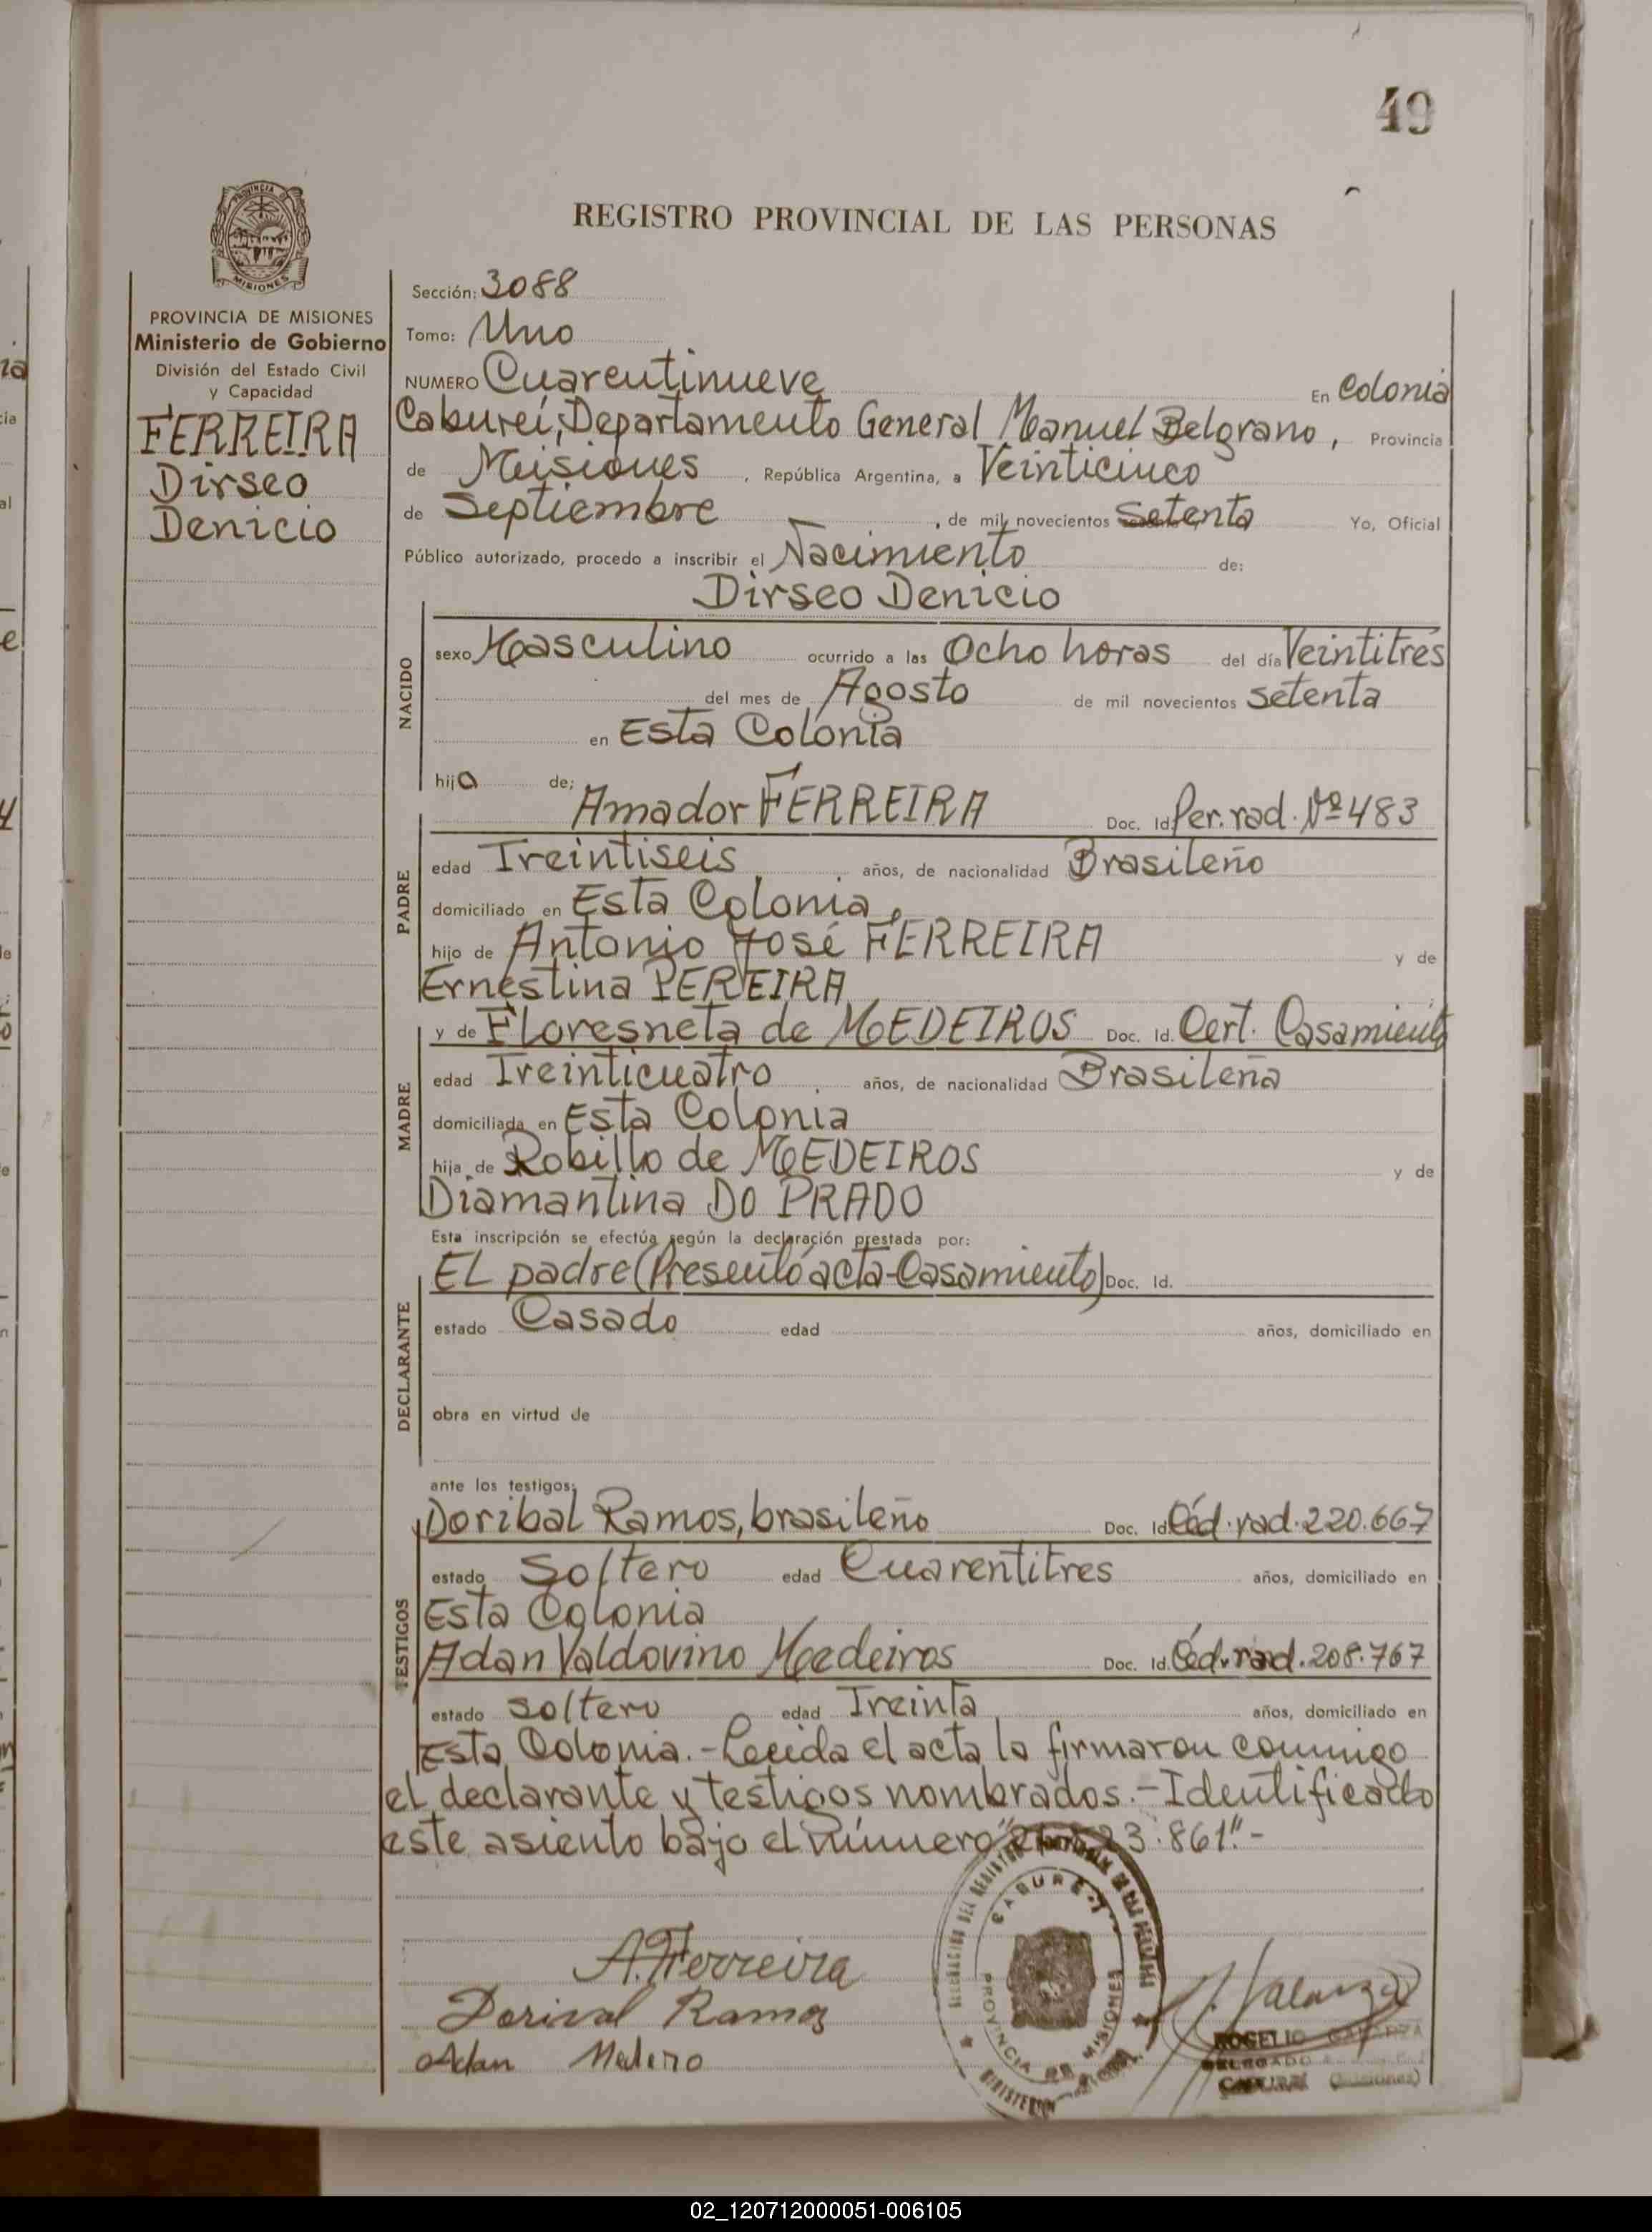 49
PROVINCIA DE
MISIONES
REGISTRO PROVINCIAL DE LAS PERSONAS
PROVINCIA DE MISIONES
Ministerio de Gobierno
División del Estado Civil
y Capacidad
FERREIRA
Dirseo
Denicio
Sección: 3088
Tomo: Uno
NUMERO Cuarentinueve En Colonia
Caburei, Departamento General Manuel Belgrano, Provincia
de Misiones, República Argentina, a Veinticinco
de Septiembre, de mil novecientos Setenta Yo, Oficial
Público autorizado, procedo a inscribir el Nacimiento de:
Dirseo Denicio
NACIDO
sexo Masculino ocurrido a las Ocho horas del día Veintitrés
del mes de Agosto de mil novecientos setenta
en Esta Colonia
hijo de;
Amador FERREIRA Doc. Id. Per. rad. Nº 483
PADRE
edad Treintiseis años, de nacionalidad Brasileño
domiciliado en Esta Colonia,
hijo de Antonio José FERREIRA y de
Ernestina PEREIRA
y de Floresneta de MEDEIROS Doc. Id. Cert. Casamiento
MADRE
edad Treinticuatro años, de nacionalidad Brasileña
domiciliada en Esta Colonia
hija de Robillo de MEDEIROS y de
Diamantina DO PRADO
Esta inscripción se efectúa según la declaración prestada por:
EL padre (Presentó acta-Casamiento) Doc. Id.
DECLARANTE
estado Casado edad años, domiciliado en
obra en virtud de
ante los testigos:
Doribal Ramos, brasileño Doc. Id. Céd. rad. 220.667
TESTIGOS
estado Soltero edad Cuarentitres años, domiciliado en
Esta Colonia
Adan Valdovino Medeiros Doc. Id. Céd. rad. 208.767
estado soltero edad Treinta años, domiciliado en
Esta Colonia.- Leida el acta la firmaron conmigo
el declarante y testigos nombrados.- Identificado
este asiento bajo el número 23.861"-
A. Ferreira
Dorival Ramos
Adan Medero
CABUREI
PROVINCIA DE MISIONES
MINISTERIO
ROGELIO GALARZA
DELEGADO
CABUREI (Misiones)
02_120712000051-006105